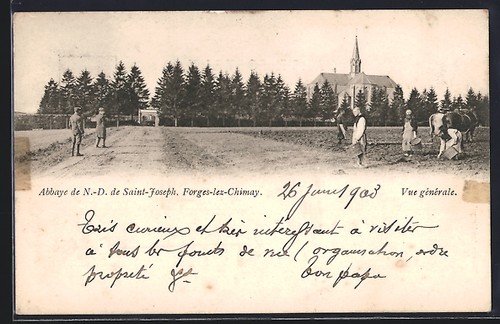 Abbaye de N.-D. de Saint-Joseph. Forges-lez-Chimay.
26 Juin 1903
Vue générale.
Très curieux et très intéressant à visiter
à tous les points de vue (organisation, ordre
propreté &a
Ton papa